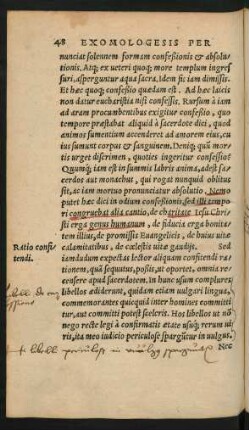 48 EXOMOLOGESIS PER
nunciat solennem formam confeſsionis & abſolu-
tionis. Atq; ex ueteri quoq; more templum ingreſ
ſuri, aſperguntur aqua ſacra. Idem fit iam dimiſsis.
Et hæc quoq; confeſsio quædam eſt. Ad hæc laicis
non datur euchariſtia niſi confeſsis. Rurſum à iam
ad aram procumbentibus exigitur confeſsio, quo
tempore præſtabat aliquid à ſacerdote dici, quod
animos ſumentium accenderet ad amorem eius, cu
ius ſumunt corpus & ſanguinem. Deniq; quũ mor
tis urget diſcrimen, quoties ingeritur confeſsio?
Quanq; iam eſt in ſummis labris anima, adeſt ſa-
cerdos aut monachus, qui rogat nunquid oblitus
ſit, ac iam mortuo pronunciatur abſolutio. Nemo
putet hæc dici in odium confeſsionis, ſed illi tempo
ri congruebat alia cantio, de charitate Ieſu Chriſti
erga genus humanum, de fiducia erga bonita-
tem illius, de promiſsis Euangelicis, de huius uitæ
Ratio confi
tendi.
calamitatibus, de cœleſtis uitæ gaudijs. Sed
iamdudum expectas lector aliquam conſitendi ra-
tionem, quã ſequutus, poſsis, ut oportet, omnia ce-
dere admiſſa. Extant hac de re non unius complures
libelli ædiderunt, quidam etiam uulgari lingua,
commemorantes quicquid inter homines committi
tur, aut committi poteſt ſceleris. Hos libellos ut nõ
nego recte legi à confirmatis ætate uſuq; rerum ui
ris, ita meo iudicio periculoſe ſpargũtur in uulgus.
Nec